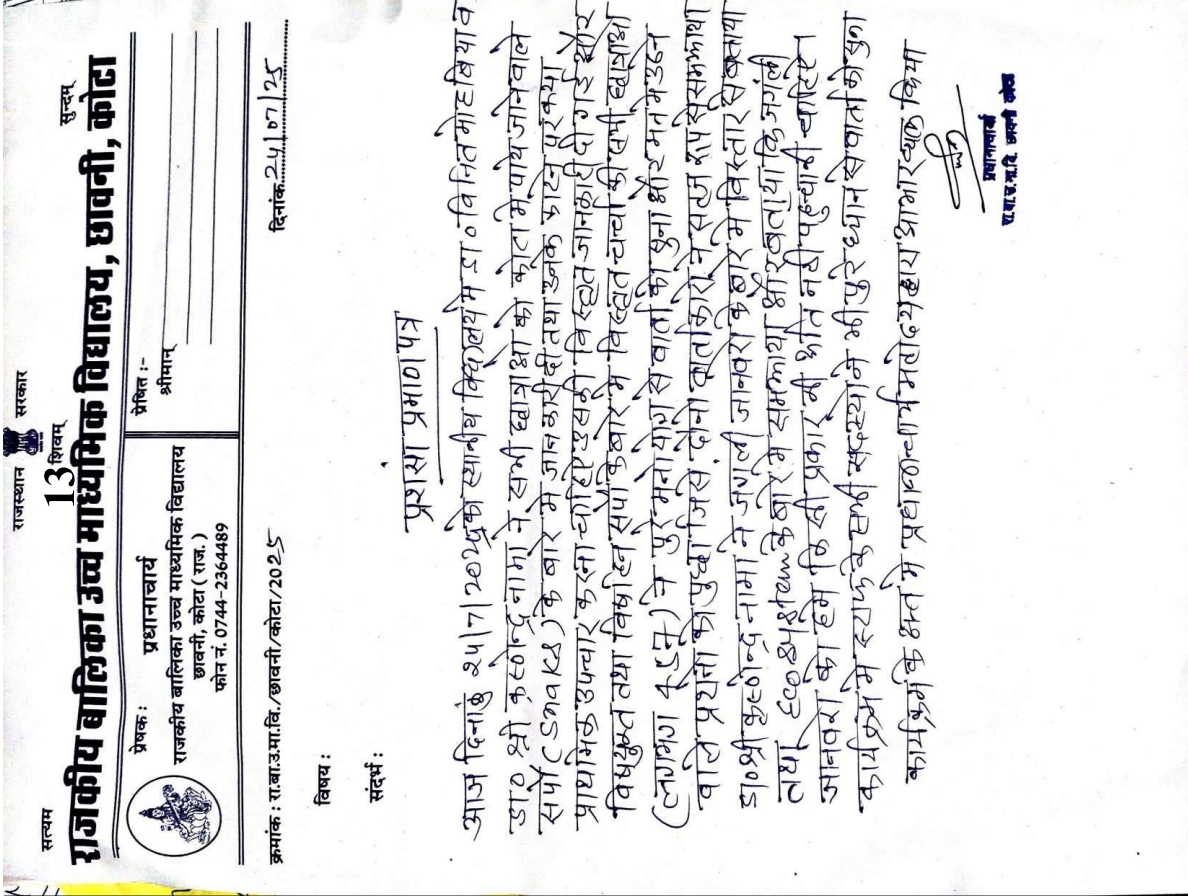 राजस्थान सरकार
13
सत्यम शिवम् सुन्दम्
राजकीय बालिका उच्च माध्यमिक विद्यालय, छावनी, कोटा
प्रेषक :
प्रधानाचार्य
राजकीय बालिका उच्च माध्यमिक विद्यालय
छावनी, कोटा ( राज. )
फोन नं. 0744-2364489
प्रेषित :-
श्रीमान्
क्रमांक : रा.बा.उ.मा.वि./छावनी/कोटा/2025 दिनांक 24/07/25
विषय :
संदर्भ :
प्रशंसा प्रमाण पत्र
आज दिनांक 24/7/2025 को स्थानीय विद्यालय मे डा० विनित महोबिया व
डा० श्री कृष्णेन्द्र नामा ने सभी छात्राओ को कोटा मे पाये जाने वाले
सर्पो (SNAKES) के बारे मे जानकारी दी तथा उनके काटने पर क्या
प्राथमिक उपचार करना चाहिए उसकी विस्तृत जानकारी दी गई और
विषयुक्त तथा विषहिन सर्पो के बारे मे विस्तृत चर्चा की सभी छात्राओ
(लगभग 457) ने पुरे मनोयोग से वार्ता को सुना और मन मे उठने
वाले प्रश्नो को पुछा जिसे दोनो वार्ताकारो ने सरल रूप से समझाया
डा० श्री कृष्णेन्द्र नामा ने जंगली जानवरो के बारे मे विस्तार से बताया
तथा Ecosystem के बारे मे समझाया और बताया कि जंगली
जानवरो को हमे किसी प्रकार की क्षति नही पहुचानी चाहिए
कार्यक्रम मे स्टाफ के सभी सदस्यो ने भी पुरे ध्यान से वार्ता को सुना
कार्यक्रम के अन्त मे प्रधानाचार्य महोदय द्वारा आभार व्यक्त किया
प्रधानाचार्य
रा.बा.उ.मा.वि. छावनी कोटा